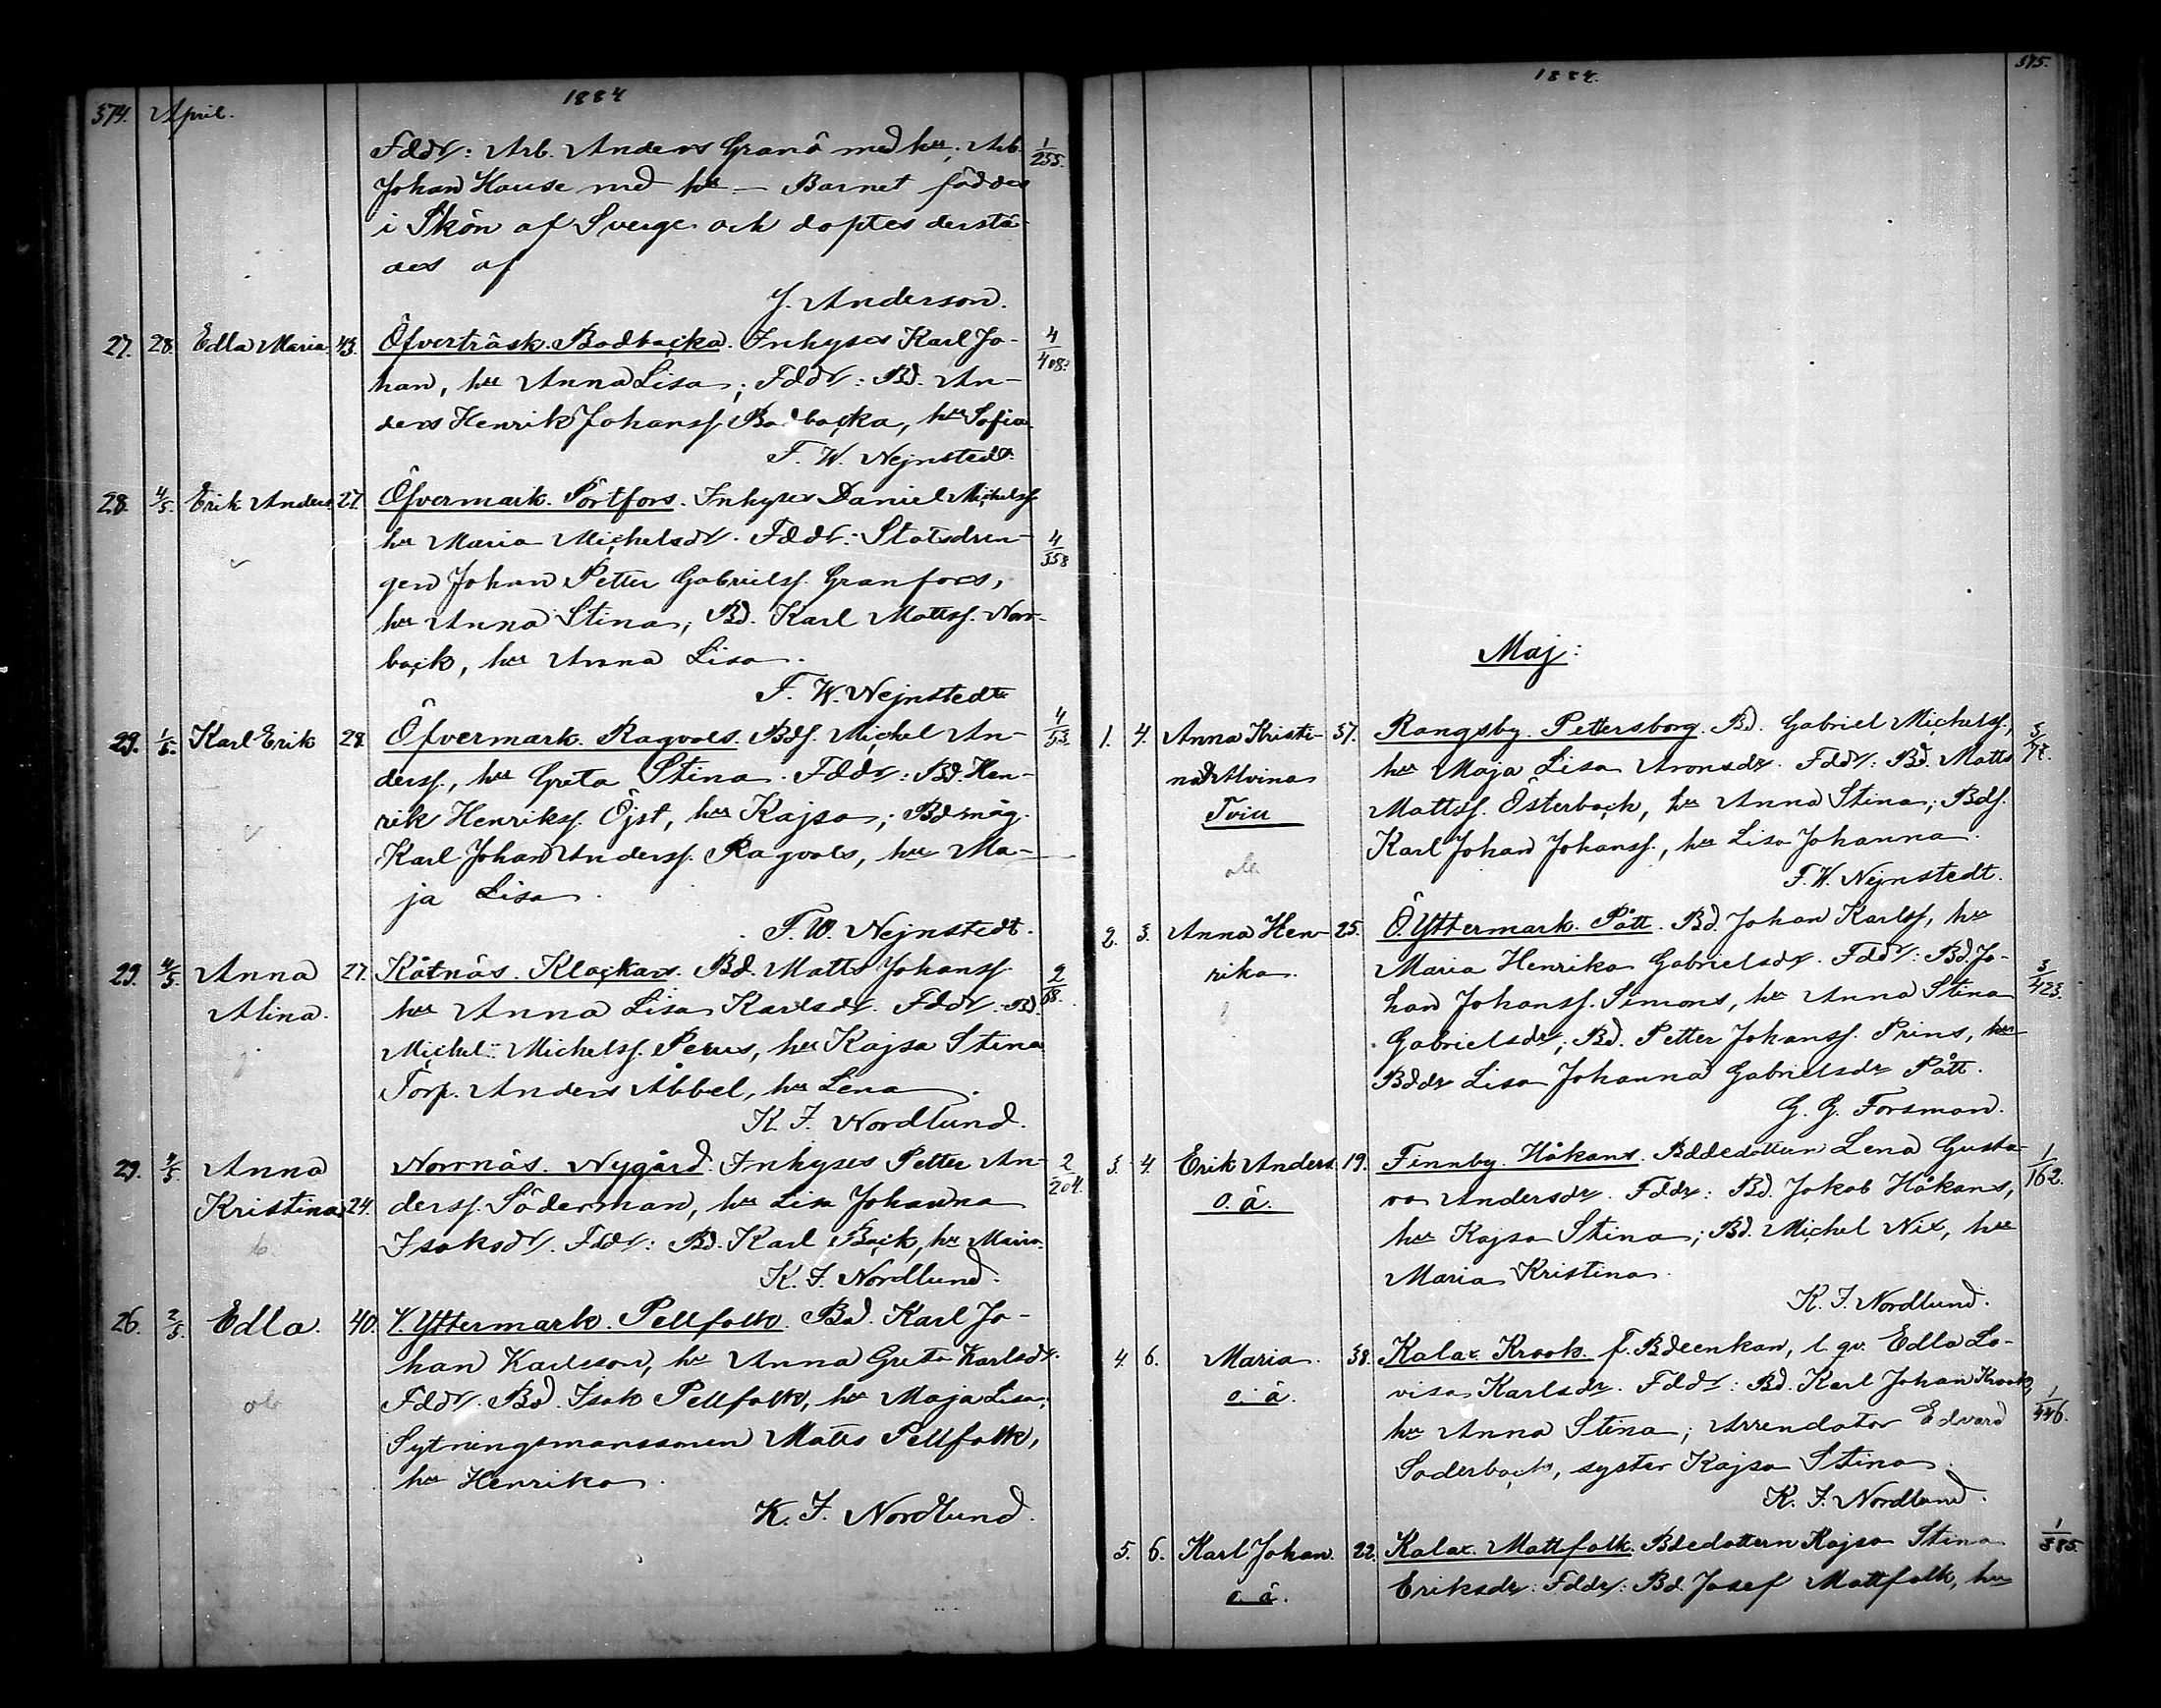 374. April. 1884
Fddr: Arb. Anders Granö med hu; Arb. 1/255.
Johan Hause med hu — Barnet föddes
i Skön af Sverge och döptes derstä-
des af
J. Anderson.
27. 28. Edla Maria 43. Öfverträsk. Bodbacka. Inhyses Karl Jo- 4/408.
han, hu Anna Lisa; Fddr: Bd. An-
ders Henrik Johanss. Bodbacka, hu Sofia
F. W. Nejnstedt.
28. 4/5. Erik Anders 27. Öfvermark. Pörtfors. Inhyses Daniel Michelss.
hu Maria Michelsdr. Fddr: Statsdren- 4/358
gen Johan Petter Gabrielss. Granfors,
hu Anna Stina; Bd. Karl Mattss. Norr-
back, hu Anna Lisa.
F. W. Nejnstedt
29. 1/5. Karl Erik 28. Öfvermark. Ragvals. Bds. Michel An- 4/53.
derss., hu Greta Stina. Fddr: Bd. Hen-
rik Henrikss. Öjst, hu Kajsa; Bdmåg.
Karl Johan Anderss. Ragvals, hu Ma-
ja Lisa.
F. W. Nejnstedt.
29. 4/5. Anna 27. Kåtnäs. Klockars. Bd. Matts Johanss. 2/68.
Alina. hu Anna Lisa Karlsdr. Fddr. Bd.
Michel Michelss. Perus, hu Kajsa Stina
Torp. Anders Åbbel, hu Lena.
K. F. Nordlund.
29. 4/5. Anna Norrnäs. Nygård. Inhyses Petter An- 2/204.
Kristina 24. derss. Söderman, hu Lisa Johanna
Isaksdr. Fddr: Bd. Karl Back, hu Maria.
K. F. Nordlund.
26. 2/5. Edla. 40. V. Yttermark. Pellfolk. Bd. Karl Jo-
han Karlsson, hu Anna Greta Karlsdr.
Fddr. Bd. Isak Pellfolk, hu Maja Lisa;
Sytningsmanssonen Matts Pellfolk,
hu Henrika.
K. F. Nordlund.
1884. 375.
Maj:
1. 4. Anna Kristi- 37. Rangsby. Pettersborg. Bd. Gabriel Michelss.,
na Alvina hu Maja Lisa Aronsdr. Fddr: Bd. Matts
Tvill Mattss. Österback, hu Anna Stina; Bds.
Karl Johan Johanss., hu Lisa Johanna.
F. W. Nejnstedt.
2. 3. Anna Hen- 25. Ö. Yttermark. Pått. Bd. Johan Karlss., hu
rika. Maria Henrika Gabrielsdr. Fddr: Bd. Jo- 3/423.
han Johanss. Simons, hu Anna Stina
Gabrielsdr; Bd. Petter Johanss. Prins, hu
Bddr Lisa Johanna Gabrielsdr Pått.
G. G. Forsman.
3. 4. Erik Anders 19. Finnby. Håkans. Bddedottern Lena Gusta- 1/162.
o. ä. va Andersdr. Fddr: Bd. Jakob Håkans,
hu Kajsa Stina; Bd. Michel Nix, hu
Maria Kristina.
K. F. Nordlund.
4. 6. Maria 38. Kalax. Krook. f. Bdeenkan, l. qv. Edla Lo-
o. ä. visa Karlsdr. Fddr: Bd. Karl Johan Krook, 1/446.
hu Anna Stina; Arrendator Edvard
Söderback, syster Kajsa Stina
K. F. Nordlund.
5. 6. Karl Johan. 22. Kalax. Mattfolk. Bdedottern Kajsa Stina 1/385.
o. ä. Eriksdr: Fddr: Bd. Josef Mattfolk, hu